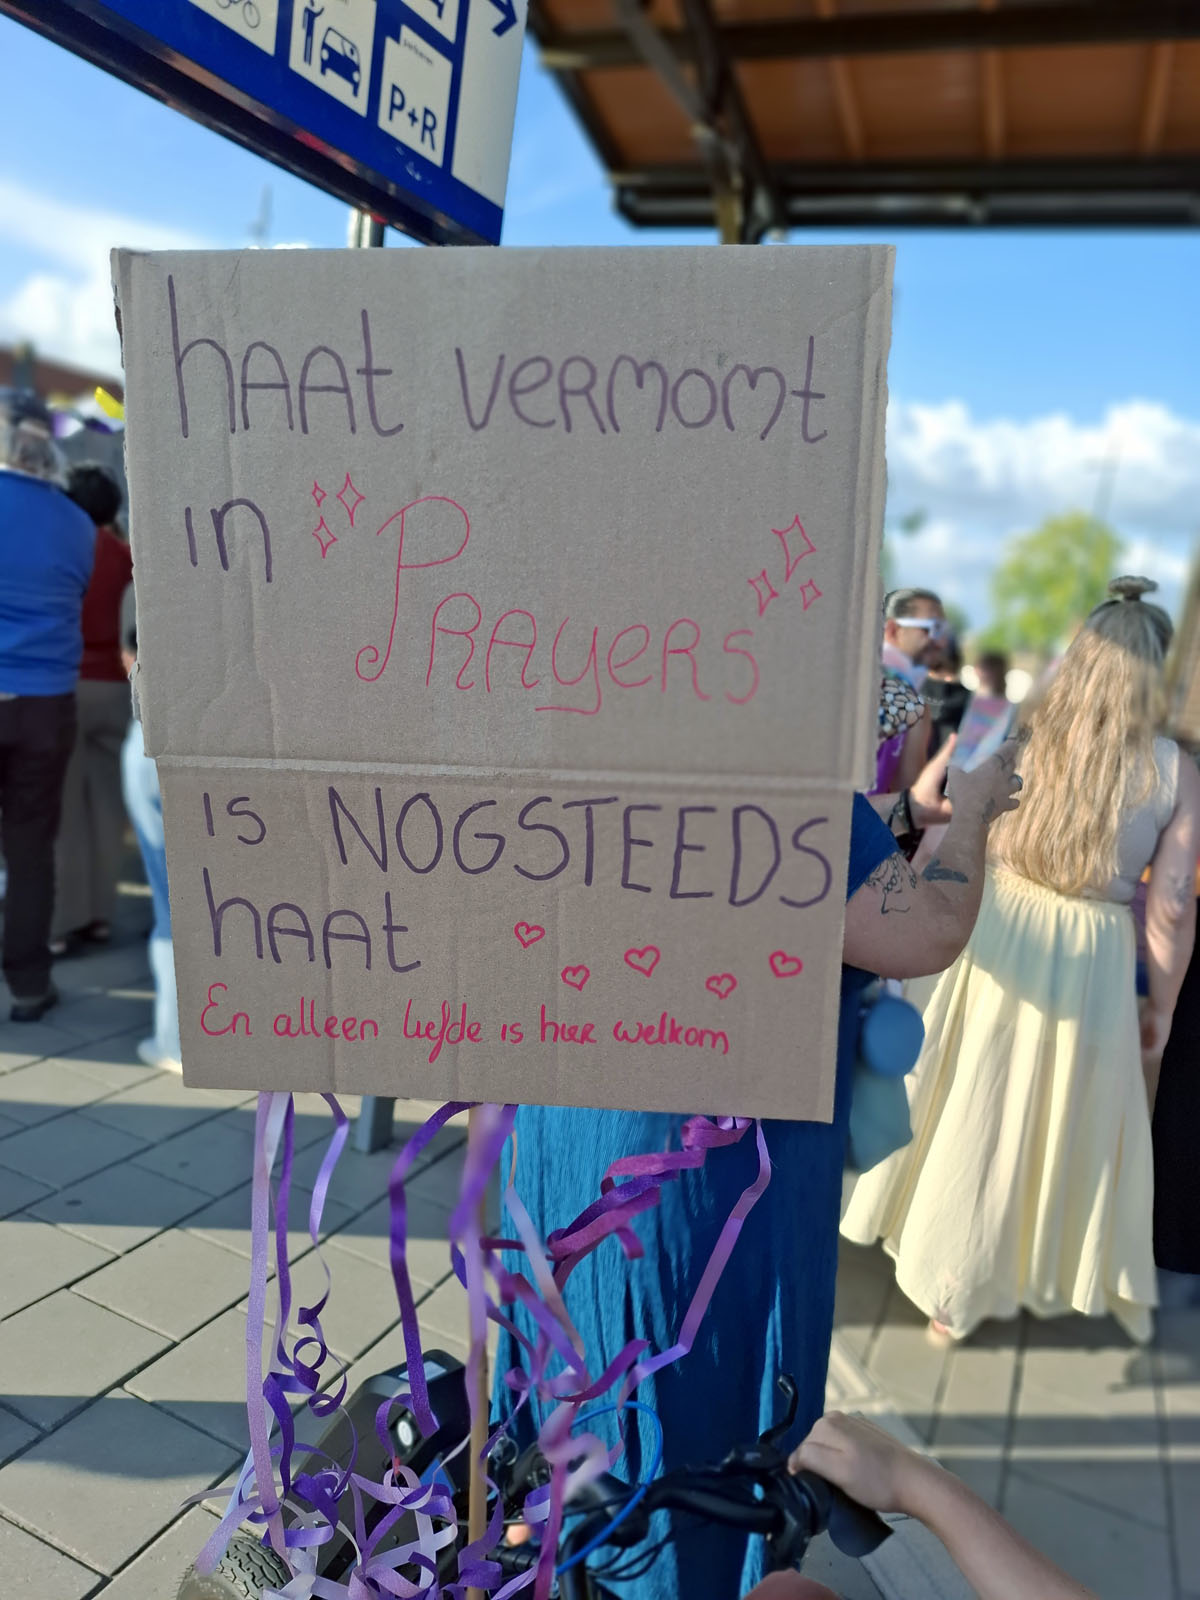 parkeren
P+R
hAAt vermomt
in Prayers
is NOGSTEEDS
hAAt
En alleen liefde is hier welkom